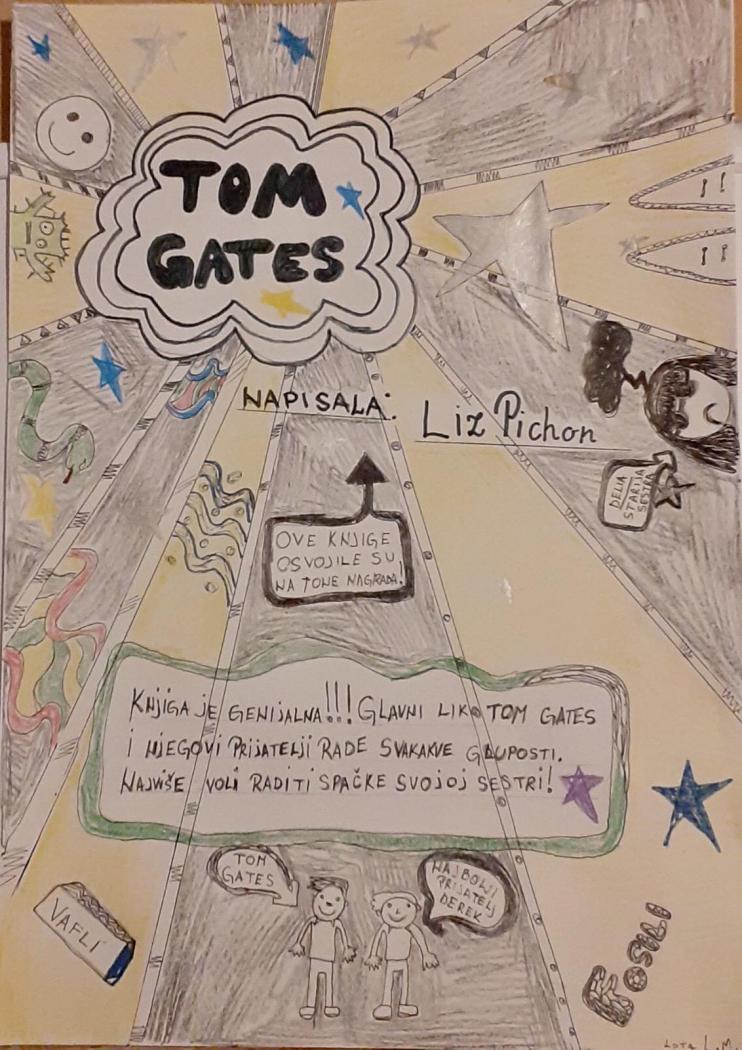 TOM
GATES
NAPISALA: Liz Pichon
DELIA
STARIJA
SESTRA
OVE KNJIGE
OSVOJILE SU
NA TONE NAGRADA!
KNJIGA JE GENIJALNA!!! GLAVNI LIK TOM GATES
I NJEGOVI PRIJATELJI RADE SVAKAKVE GLUPOSTI.
NAJVIŠE VOLI RADITI SPAČKE SVOJOJ SESTRI!
TOM
GATES
NAJBOLJI
PRIJATELJ
DEREK
VAFLI
FOSILI
LOTA L.M.